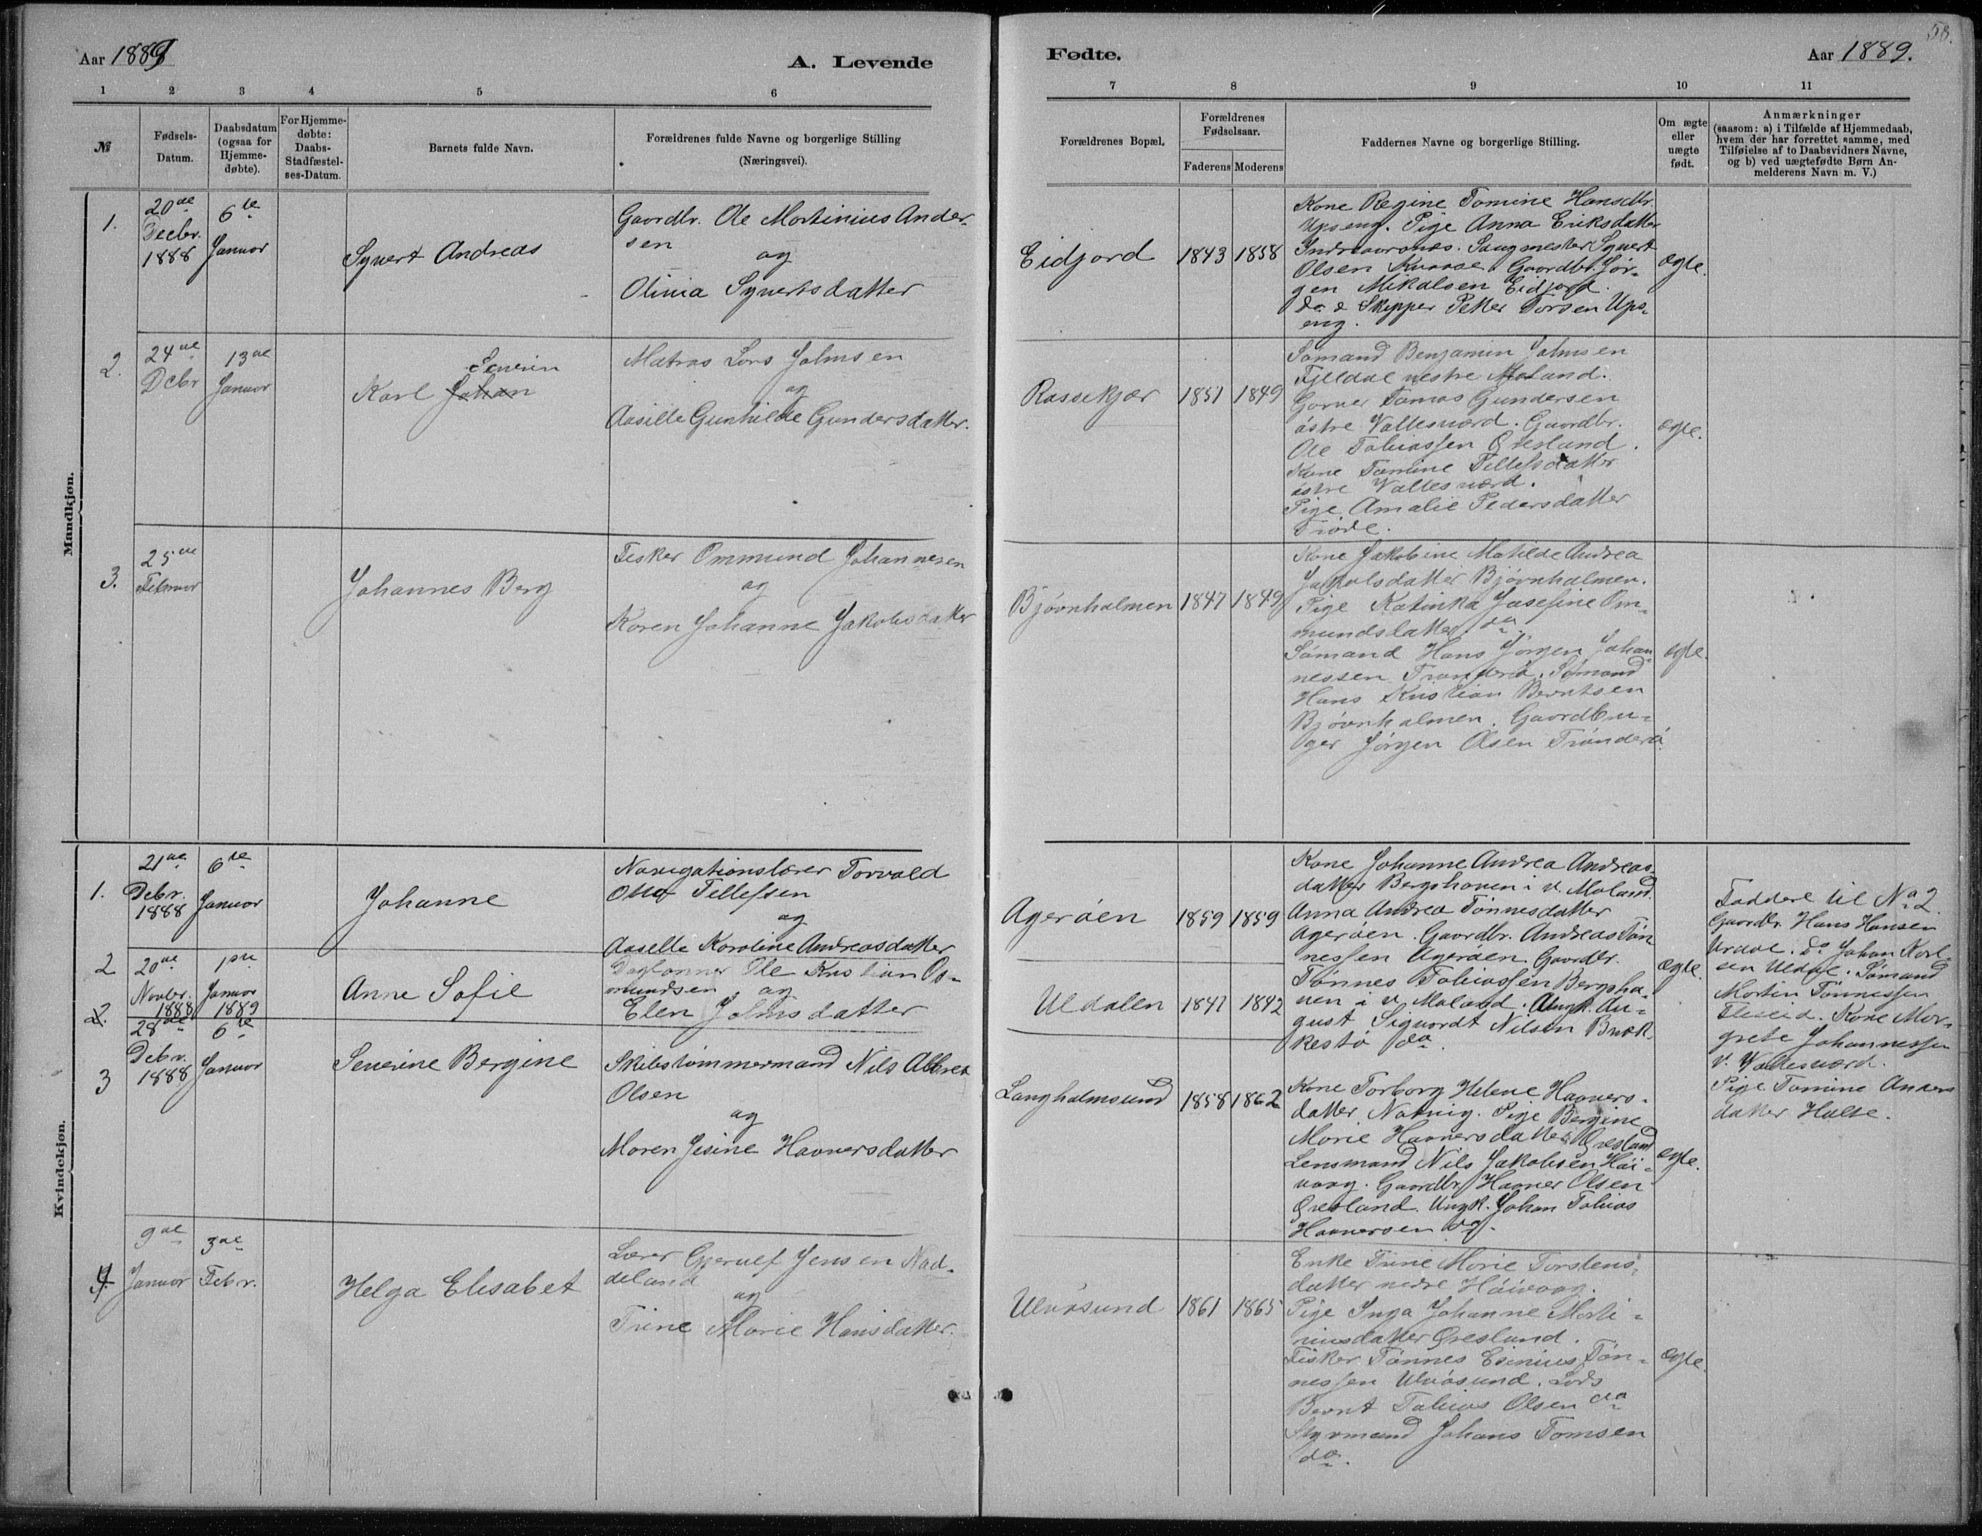 58.
Aar 1889
A. Levende
Fødte.
Aar 1889.
1 2 3 4 5 6
7 8 9 10 11
№
Fødsels-
Datum.
Daabsdatum
(ogsaa for
Hjemme-
døbte).
For Hjemme-
døbte:
Daabs-
Stadfæstel-
ses-Datum.
Barnets fulde Navn.
Forældrenes fulde Navne og borgerlige Stilling
(Næringsvei).
Forældrenes Bopæl.
Forældrenes
Fødselsaar.
Faderens Moderens
Faddernes Navne og borgerlige Stilling.
Om ægte
eller
uægte
født.
Anmærkninger
(saasom: a) i Tilfælde af Hjemmedaab,
hvem der har forrettet samme, med
Tilføielse af to Daabsvidners Navne,
og b) ved uægtefødte Børn An-
melderens Navn m. V.)
Mandkjøn.
1.
20de
Decbr.
1888
6te
Januar
Syvert Andreas
Gaardbr. Ole Martinius Ander-
sen
og
Olinia Syvertsdatter
Eidjord
1843 1858
Kone Regine Tomine Hansdtr.
Upseng. Pige Anna Eriksdatter
Indreaaranes. Saugmester Syvert
Olsen Kvaase. Gaardbr. Jør-
gen Mikalsen Eidjord.
do & Skipper Petter Torsen Ups-
eng.
ægte.
2.
24de
Decbr
13de
Januar
Severin
Karl Johan
Matros Lars Jalmsen
og
Aasille Gunhilde Gundersdatter.
Rossekjær
1851 1849
Sømand Benjamin Jalmsen
Fjeldal vestre Moland.
Garver Tomas Gundersen
østre Vallesværd. Gaardbr.
Ole Tobiassen Øresland.
Kone Tomine Tellefsdatter
østre Vallesværd.
Pige Amalie Pedersdatter
Trøde.
ægte.
3.
25de
Februar
Johannes Berg
Fisker Ommund Johannesen
og
Karen Johanne Jakobsdatter
Bjøvnholmen
1847 1849
Kone Jakobine Matilde Andrea
Jakobsdatter Bjøvnholmen.
Pige Katinka Josefine Om-
mundsdatter do
Sømand Hans Jørgen Johan-
nessen Trønderø. Sømand
Hans Kristian Berntsen
Bjøvnholmen. Gaardbru-
ger Jørgen Olsen Trønderø
ægte.
Kvindekjøn.
1.
21de
Debr.
1888
6te
Januar
Johanne
Navigationslærer Torvald
Otto Tellefsen
og
Aaselle Karoline Andreasdatter
Agerøen
1859 1859
Kone Johanne Andrea Andreas-
datter Bergshaven i v. Moland.
Anna Andrea Tønnesdatter
Agerøen. Gaardbr. Andreas Tøn-
nessen Agerøen. Gaardbr.
Tønnes Tobiassen Bergsha-
ven i v. Moland. Ungk. Au-
gust Siguardt Nilsen Bræk-
kestø do
ægte.
Faddere til No 2.
Gaardbr. Hans Hansen
Urdal. Do Johan Karl-
sen Uldal. Sømand
Martin Tønnessen
Kone Mar-
grete Johannessen
v. Vallesværd.
Pige Tomine Anders
datter Holte.
2
20de
Novbr.
1888
1ste
Januar
1889
Anne Sofie
Daglønner Ole Kristian Os-
mundsen og
Elen Jalmsdatter
Uldalen
1847 1842
2.
3
28de
Debr.
1888
6te
Januar
Severine Bergine
Skibstømmermand Nils Albret
Olsen
og
Maren Jesine Havnersdatter
Langholmsund
1858 1862
Kone Torborg Helene Havners-
datter Natvig. Pige Bergine
Marie Havnersdatter Øresland
Lensmand Nils Jakobsen Høi-
vaag. Gaardbr. Havner Olsen
Øresland. Ungk. Johan Tobias
Havnersen do.
ægte.
4.
9de
Januar
3de
Febr.
Helga Elisabet
Lærer Gjerulf Jensen Nod-
deland
og
Trine Marie Hansdatter.
Ulvøsund
1861 1865
Enke Trine Marie Torstens-
datter nedre Høivaag.
Pige Inga Johanne Marti-
niusdatter Øresland.
Fisker Tønnes Esinius Tøn-
nessen Ulvøsund. Lods
Bernt Tobias Olsen do
Styrmand Johans Tomsen
do.
ægte.